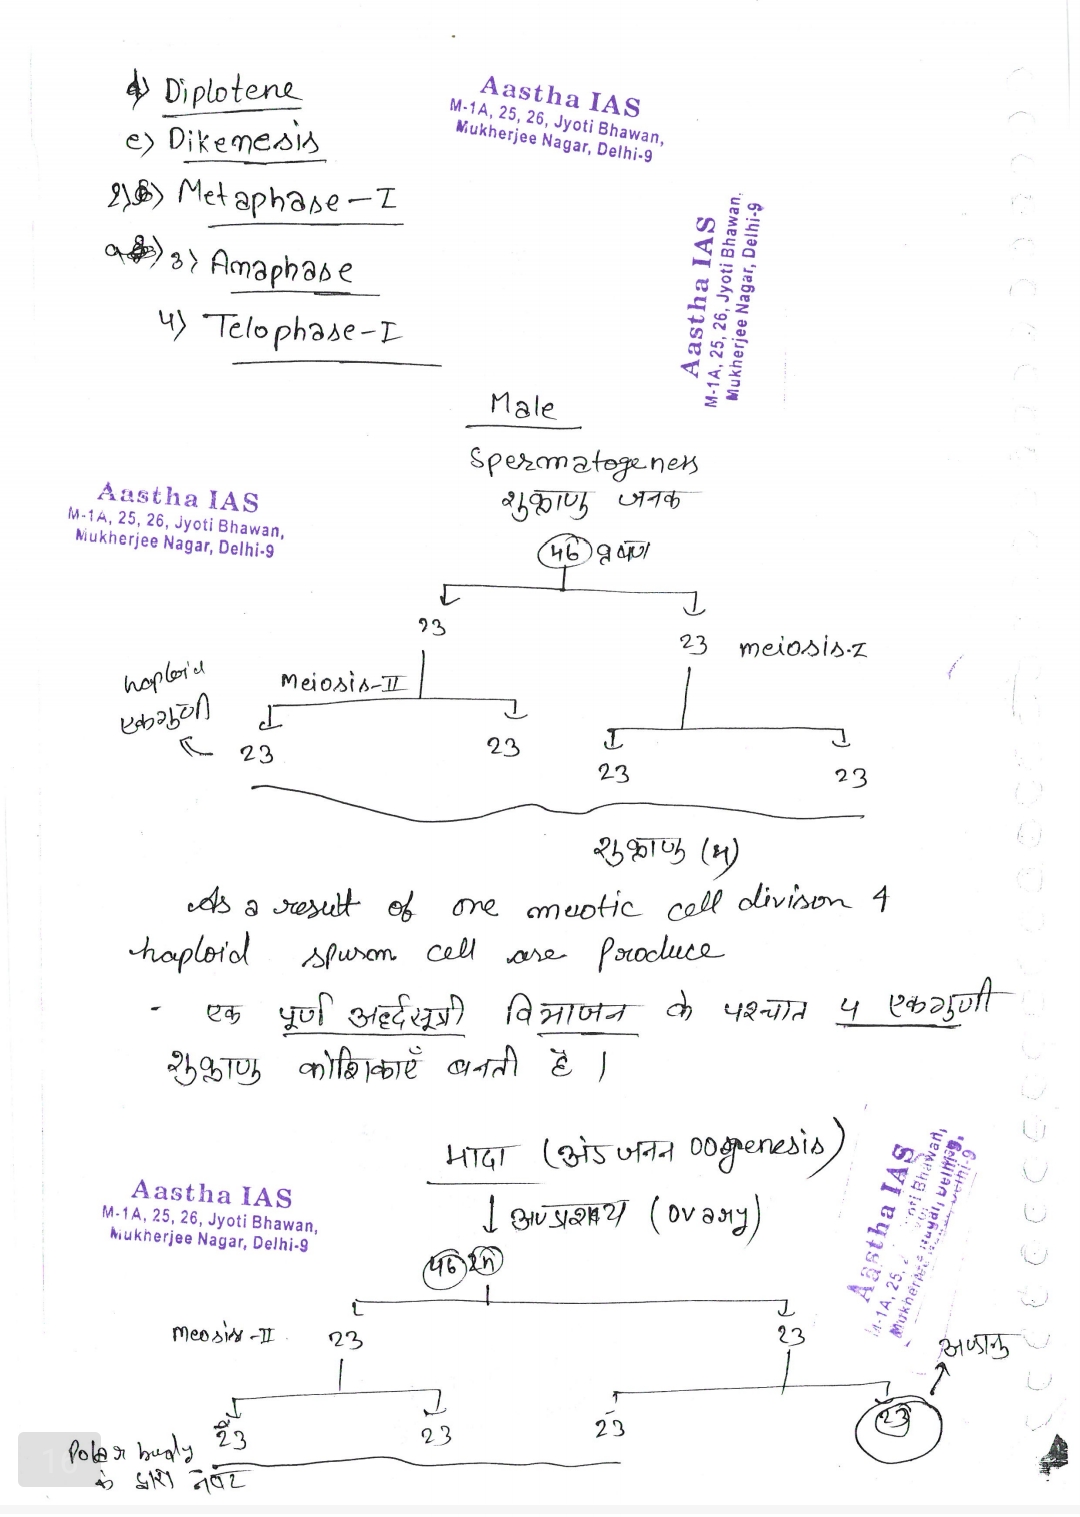 d) Diplotene
e) Dikenesis
2) Metaphase-I
3) Amaphase
4) Telophase-I
Aastha IAS
M-1A, 25, 26, Jyoti Bhawan,
Mukherjee Nagar, Delhi-9
Aastha IAS
M-1A, 25, 26, Jyoti Bhawan,
Mukherjee Nagar, Delhi-9
Male
Spermatogeness
शुक्राणु जनक
Aastha IAS
M-1A, 25, 26, Jyoti Bhawan,
Mukherjee Nagar, Delhi-9
46 वृषण
23
23 meiosis-I
haploid
एकगुणी
Meiosis-II
23 23
23 23
शुक्राणु (4)
As a result of one meotic cell divison 4
haploid spurm cell are Produce
- एक पूर्ण अर्द्धसूत्री विभाजन के पश्चात 4 एकगुणी
शुक्राणु कोशिकाएँ बनती है ।
मादा (अंड जनन oogenesis)
↓ अण्डाशय (ovary)
Aastha IAS
M-1A, 25, 26, Jyoti Bhawan,
Mukherjee Nagar, Delhi-9
Aastha IAS
46 2n
Meosis-II 23 23
अण्डाणु
23 23 23 23
Polar budy
के द्वारा नष्ट